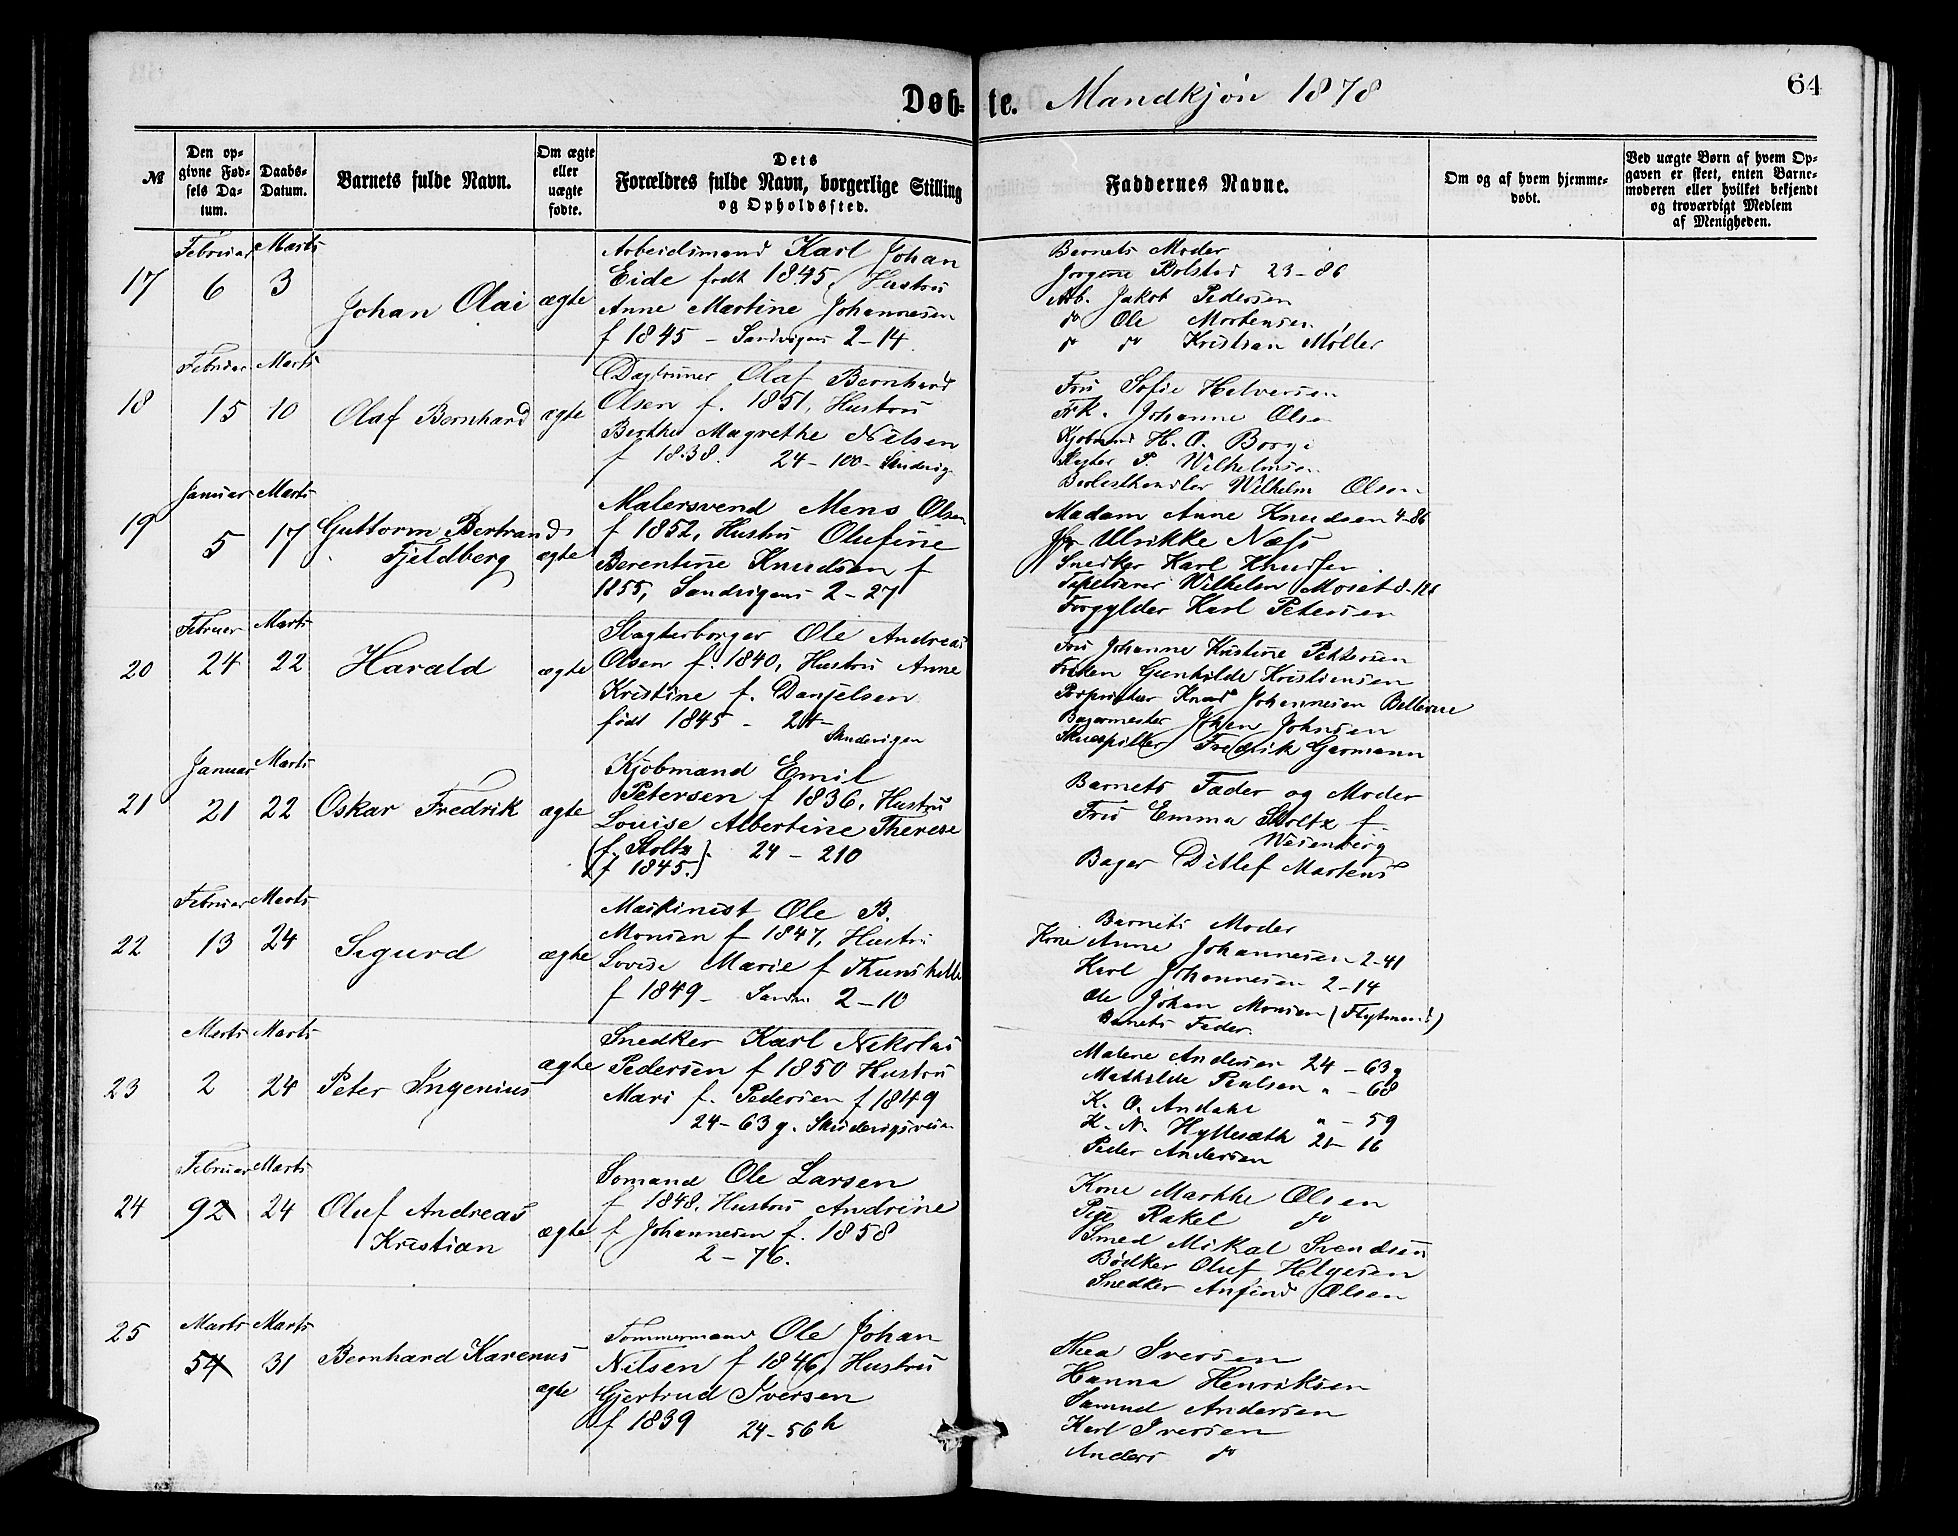 64
Døb- te. Mandkjøn 1878
№
Den op-
givne Fød-
sels Da-
tum.
Daabs-
Datum.
Barnets fulde Navn.
Om ægte
eller
uægte
fødte.
Dets
Forældres fulde Navn, borgerlige Stilling
og Opholdssted.
Faddernes Navne.
Om og af hvem hjemme-
døbt.
Ved uægte Børn af hvem Op-
gaven er skeet, enten Barne-
moderen eller hvilket bekjendt
og troværdigt Medlem
af Menigheden.
17
Februar 6
Marts 3
Johan Olai
ægte
Arbeidsmand Karl Johan
Eide født 1845, Hustru
Anne Martine Johannesen
f 1845 - Sandvigens 2-14
Barnets Moder
Jorgine Rolstad 23-86
Arb. Jakob Pedersen
do Ole Mortensen
do do Kristian Møller
18
Februar 15
Marts 10
Olaf Bernhard
ægte
Olaf Bernhard
Olsen f. 1851, Hustru
Berthe Magrethe Nilsen
f 1838. 24-100- Skudevig
Fru Sofie Halversen
Frk. Johanne Olsen
Kjøbmand H. A. Borge
P. Wilhelmsen
Wilhelm Olsen
19
Januar 5
Marts 17
Guttorm Bertrand
Fjeldberg
ægte
Malersvend Mens Olsen
f 1852, Hustru Olufine
Berentine Knudsen f
1855, Sandvigens 2-27
Madam Anne Knudsen 4-86
Ulrikke Næss
Snedker Karl Knudsen
Wilhelm
Forgylder Karl Petersen
20
Februar 24
Marts 22
Harald
ægte
Slagterborger Ole Andreas
Olsen f. 1840, Hustru Anne
Kristine f. Danjelsen
født 1845 - 24
Skudevigen
Fru Johanne Kristine Pettersen
Frøken Gunhilde Kristiensen
Proprietær Knud Johannesen Bellevue
Bagermester Johan Johnsen
Skuespiller Fredrik Garmann
21
Januar 21
Marts 22
Oskar Fredrik
ægte
Kjøbmand Emil
Petersen f 1836, Hustru
Louise Albertine Therese
(f. Stoltz 24-210
f 1845.)
Barnets Fader og Moder
Fru Emma Stoltz f
Wesenberg
Bager Ditlef Martens
22
Februar 13
Marts 24
Sigurd
ægte
Maskinist Ole B.
Monsen f 1847, Hustru
Lovise Marie f
f 1849 - 2-10
Barnets Moder
Kone Anne Johannesen 2-41
Karl Johannesen 2-14
Ole Johan Monsen (Flytmand)
Barnets Fader.
23
Marts 2
Marts 24
Peter Ingenius
ægte
Snedker Karl Nikolai
Pedersen f 1850 Hustru
Mari f. Pedersen f 1849
24-63g. Skudevigsveien
Malene Andersen 24-63g
Mathilde Paulsen " - 68
K. O. Andahl " - 59
K. N. Hyllesæth 21-16
Peder Andersen
24
Februar 9
Marts 24
Oluf Andreas
Kristian
ægte
Sømand Ole Larsen
f 1848, Hustru Andrine
f Johannesen f. 1858
2-76.
Kone Marthe Olsen
Pige Rakel do
Smed Mikal Svendsen
Bødker Oluf Helgesen
Snedker Anfind Olsen
25
Marts 5
Marts 31
Bernhard Karenus
ægte
Tømmermand Ole Johan
Nilsen f 1846, Hustru
Gjertrud Iversen
f 1839 24-56h
Thea Iversen
Hanna Henriksen
Samuel Andersen
Karl Iversen
Anders do